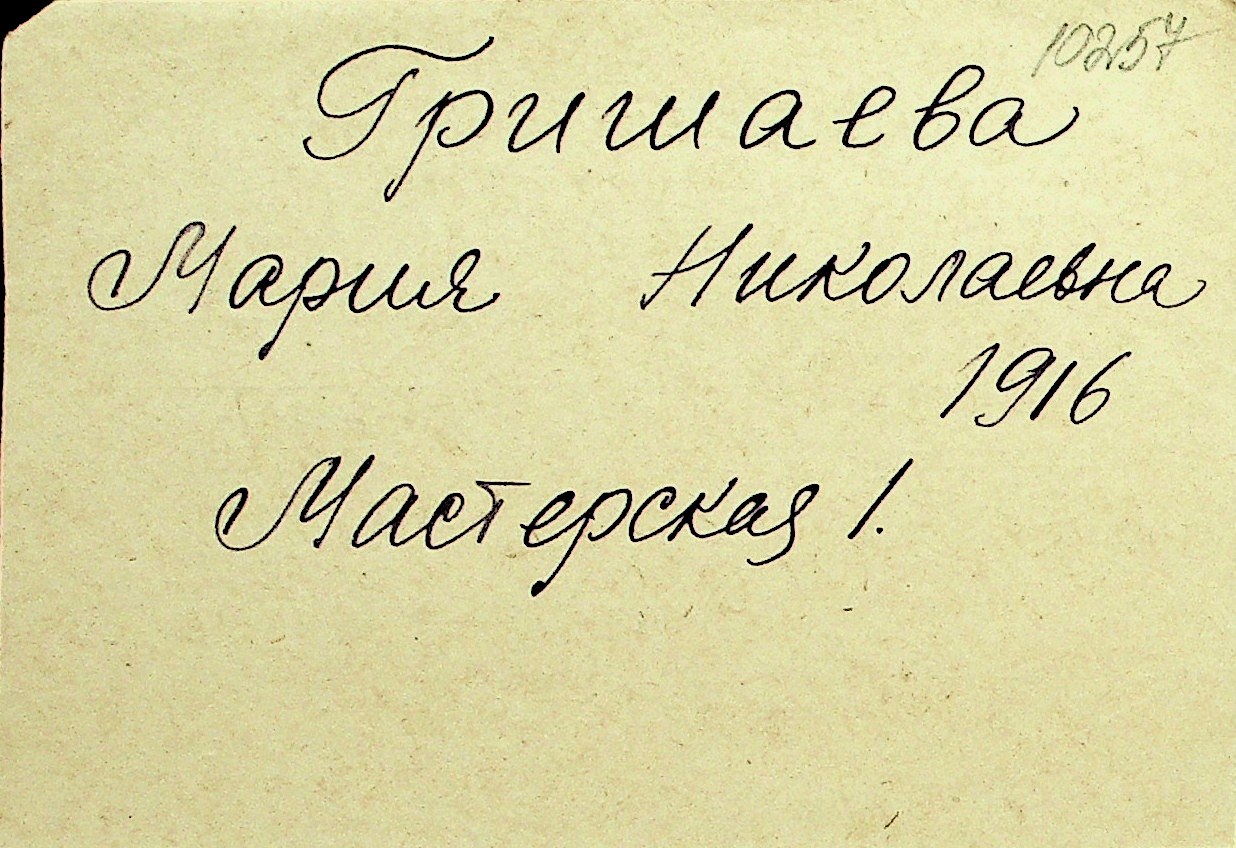 10257
Гришаева
Мария Николаевна
1916
Мастерская 1.